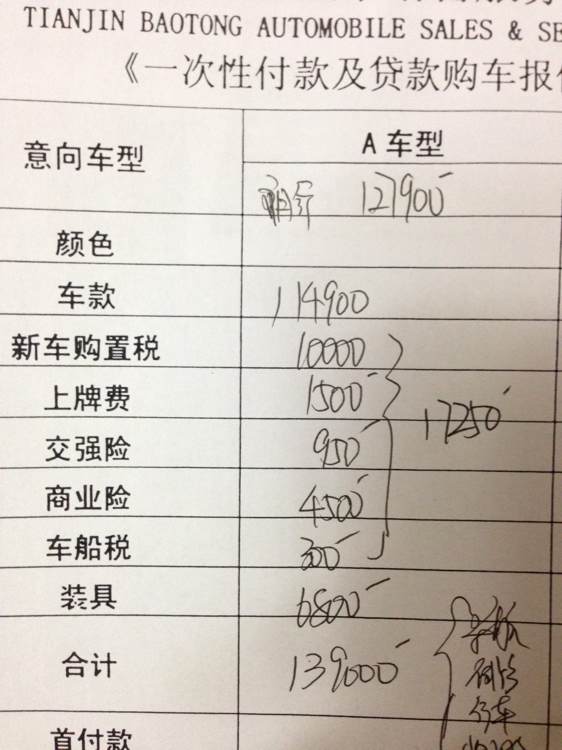 TIANJIN BAOTONG AUTOMOBILE SALES & SE
《一次性付款及贷款购车报
意向车型 A 车型
127900
颜色
车款 114900
新车购置税 10000
上牌费 1500
交强险 950 17250
商业险 4500
车船税 300
装具 6800
合计 139000
首付款